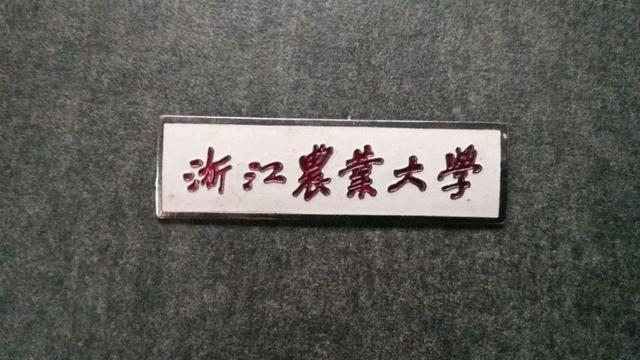 浙江農業大學